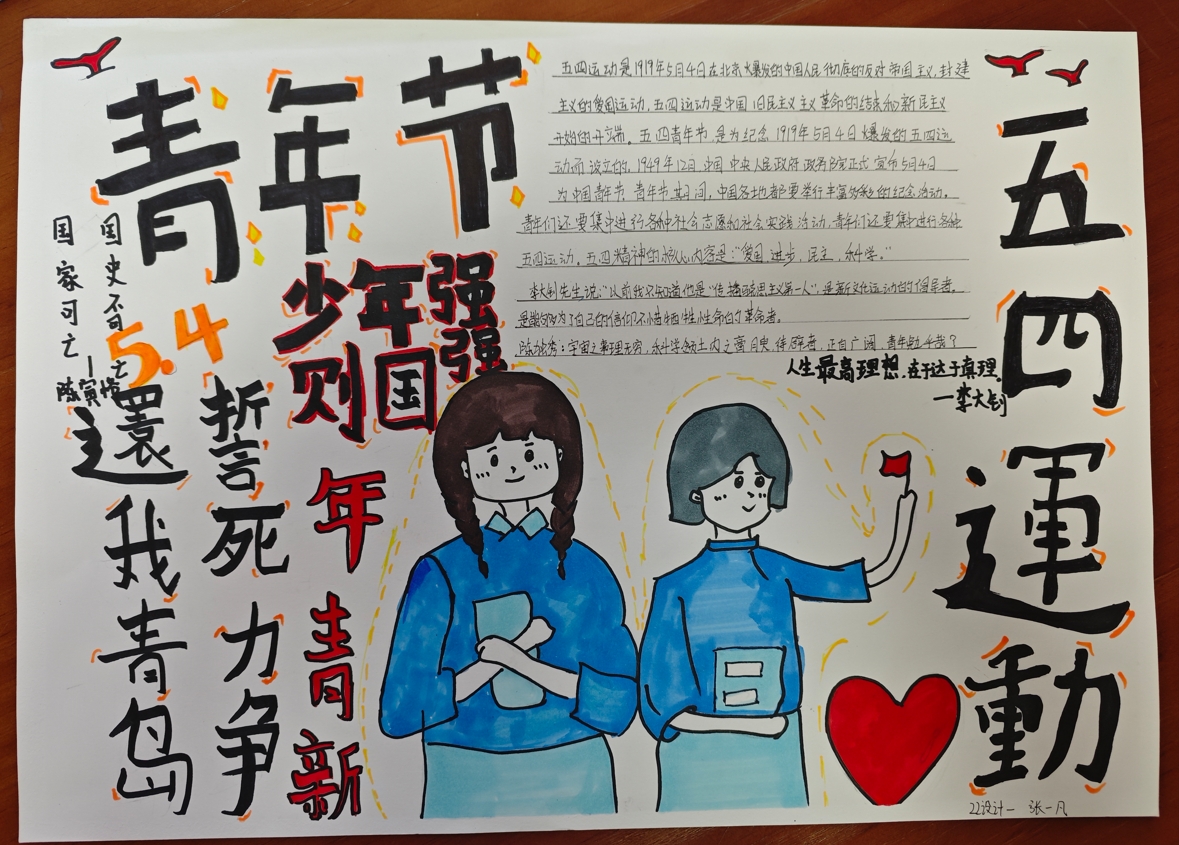 青年节
五四运动是1919年5月4日在北京爆发的中国人民彻底的反对帝国主义、封建
主义的爱国运动,五四运动是中国旧民主主义革命的结束和新民主
开始的开端。五四青年节,是为纪念1919年5月4日爆发的五四运
动而设立的,1949年12日中国中央人民政府政务院正式宣布5月4日
为中国青年节,青年节期间,中国各地都要举行丰富多彩的纪念活动。
青年们还要集中进行各种社会志愿和社会实践活动,青年们还要集中进行各种
五四运动。五四精神的核心内容是:“爱国,进步,民主,科学。”
李大钊先生说:“以前我只知道他是“传播马思主义第一人”,是新文化运动的倡导者。
是能够为了自己的信仰不惜牺牲性命的革命者。
陈独秀:宇宙之事理无穷,科学领土内之膏
正自广阔,青年勉乎哉?
人生最高理想,在于达于真理。
—李大钊
五四運動
国家可亡
国史不可亡
—陈寅恪
5.4
少年强
则国强
還我青岛
誓死力争
年青新
22设计一 张一凡